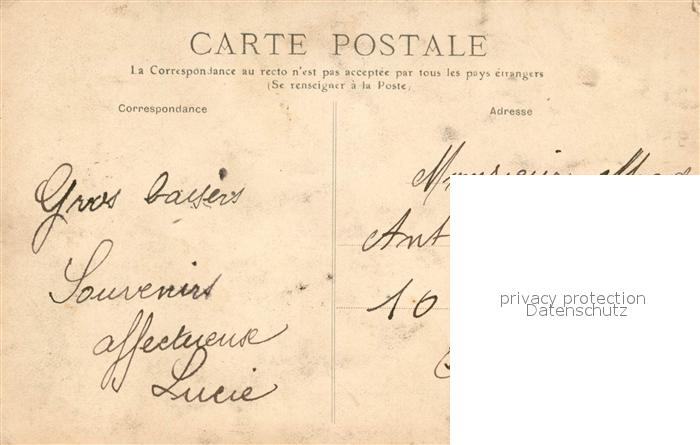 CARTE POSTALE
La Correspondance au recto n'est pas acceptée par tous les pays étrangers
(Se renseigner à la Poste)
Correspondance
Adresse
Gros baisers
Souvenirs
affectueuse
Lucie
Monsieur
Ant
10
privacy protection
Datenschutz